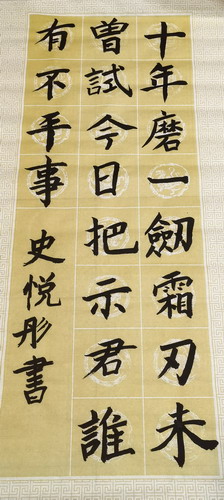 十年磨一劒霜刃未
曽試今日把示君誰
有不平事
史悦彤書